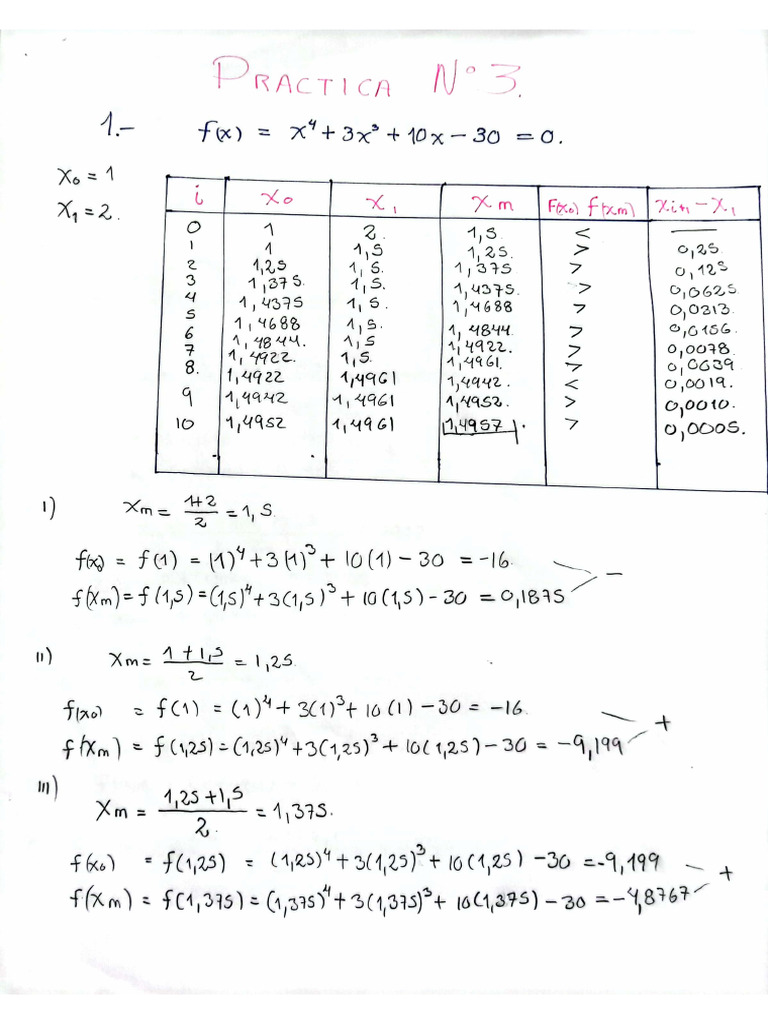 PRACTICA Nº3.
1.- f(x) = x⁴ + 3x³ + 10x - 30 = 0.
x₀ = 1
x₁ = 2.
i x₀ x₁ xm F(x₀) f(xm) xi+1 - x1
0 1 2. 1,5 < —
1 1 1,5 1,25. > 0,25
2 1,25 1,5. 1,375 > 0,125
3 1,375. 1,5. 1,4375 > 0,0625
4 1,4375 1,5. 1,4688 > 0,0313
5 1,4688 1,5. 1,4844 > 0,0156
6 1,4844. 1,5 1,4922. > 0,0078
7 1,4922. 1,5. 1,4961. > 0,0039
8. 1,4922 1,4961 1,4942. < 0,0019.
9 1,4942 1,4961 1,4952. > 0,0010.
10 1,4952 1,4961 1,4957. > 0,0005.
I) xm = (1+2)/2 = 1,5
f(x₀) = f(1) = (1)⁴ + 3(1)³ + 10(1) - 30 = -16.
f(xm) = f(1,5) = (1,5)⁴ + 3(1,5)³ + 10(1,5) - 30 = 0,1875 > -
II) xm = (1+1,5)/2 = 1,25.
f(x₀) = f(1) = (1)⁴ + 3(1)³ + 10(1) - 30 = -16.
f(xm) = f(1,25) = (1,25)⁴ + 3(1,25)³ + 10(1,25) - 30 = -9,199 > +
III) xm = (1,25+1,5)/2. = 1,375.
f(x₀) = f(1,25) = (1,25)⁴ + 3(1,25)³ + 10(1,25) - 30 = -9,199
f(xm) = f(1,375) = (1,375)⁴ + 3(1,375)³ + 10(1,375) - 30 = -4,8767 > +